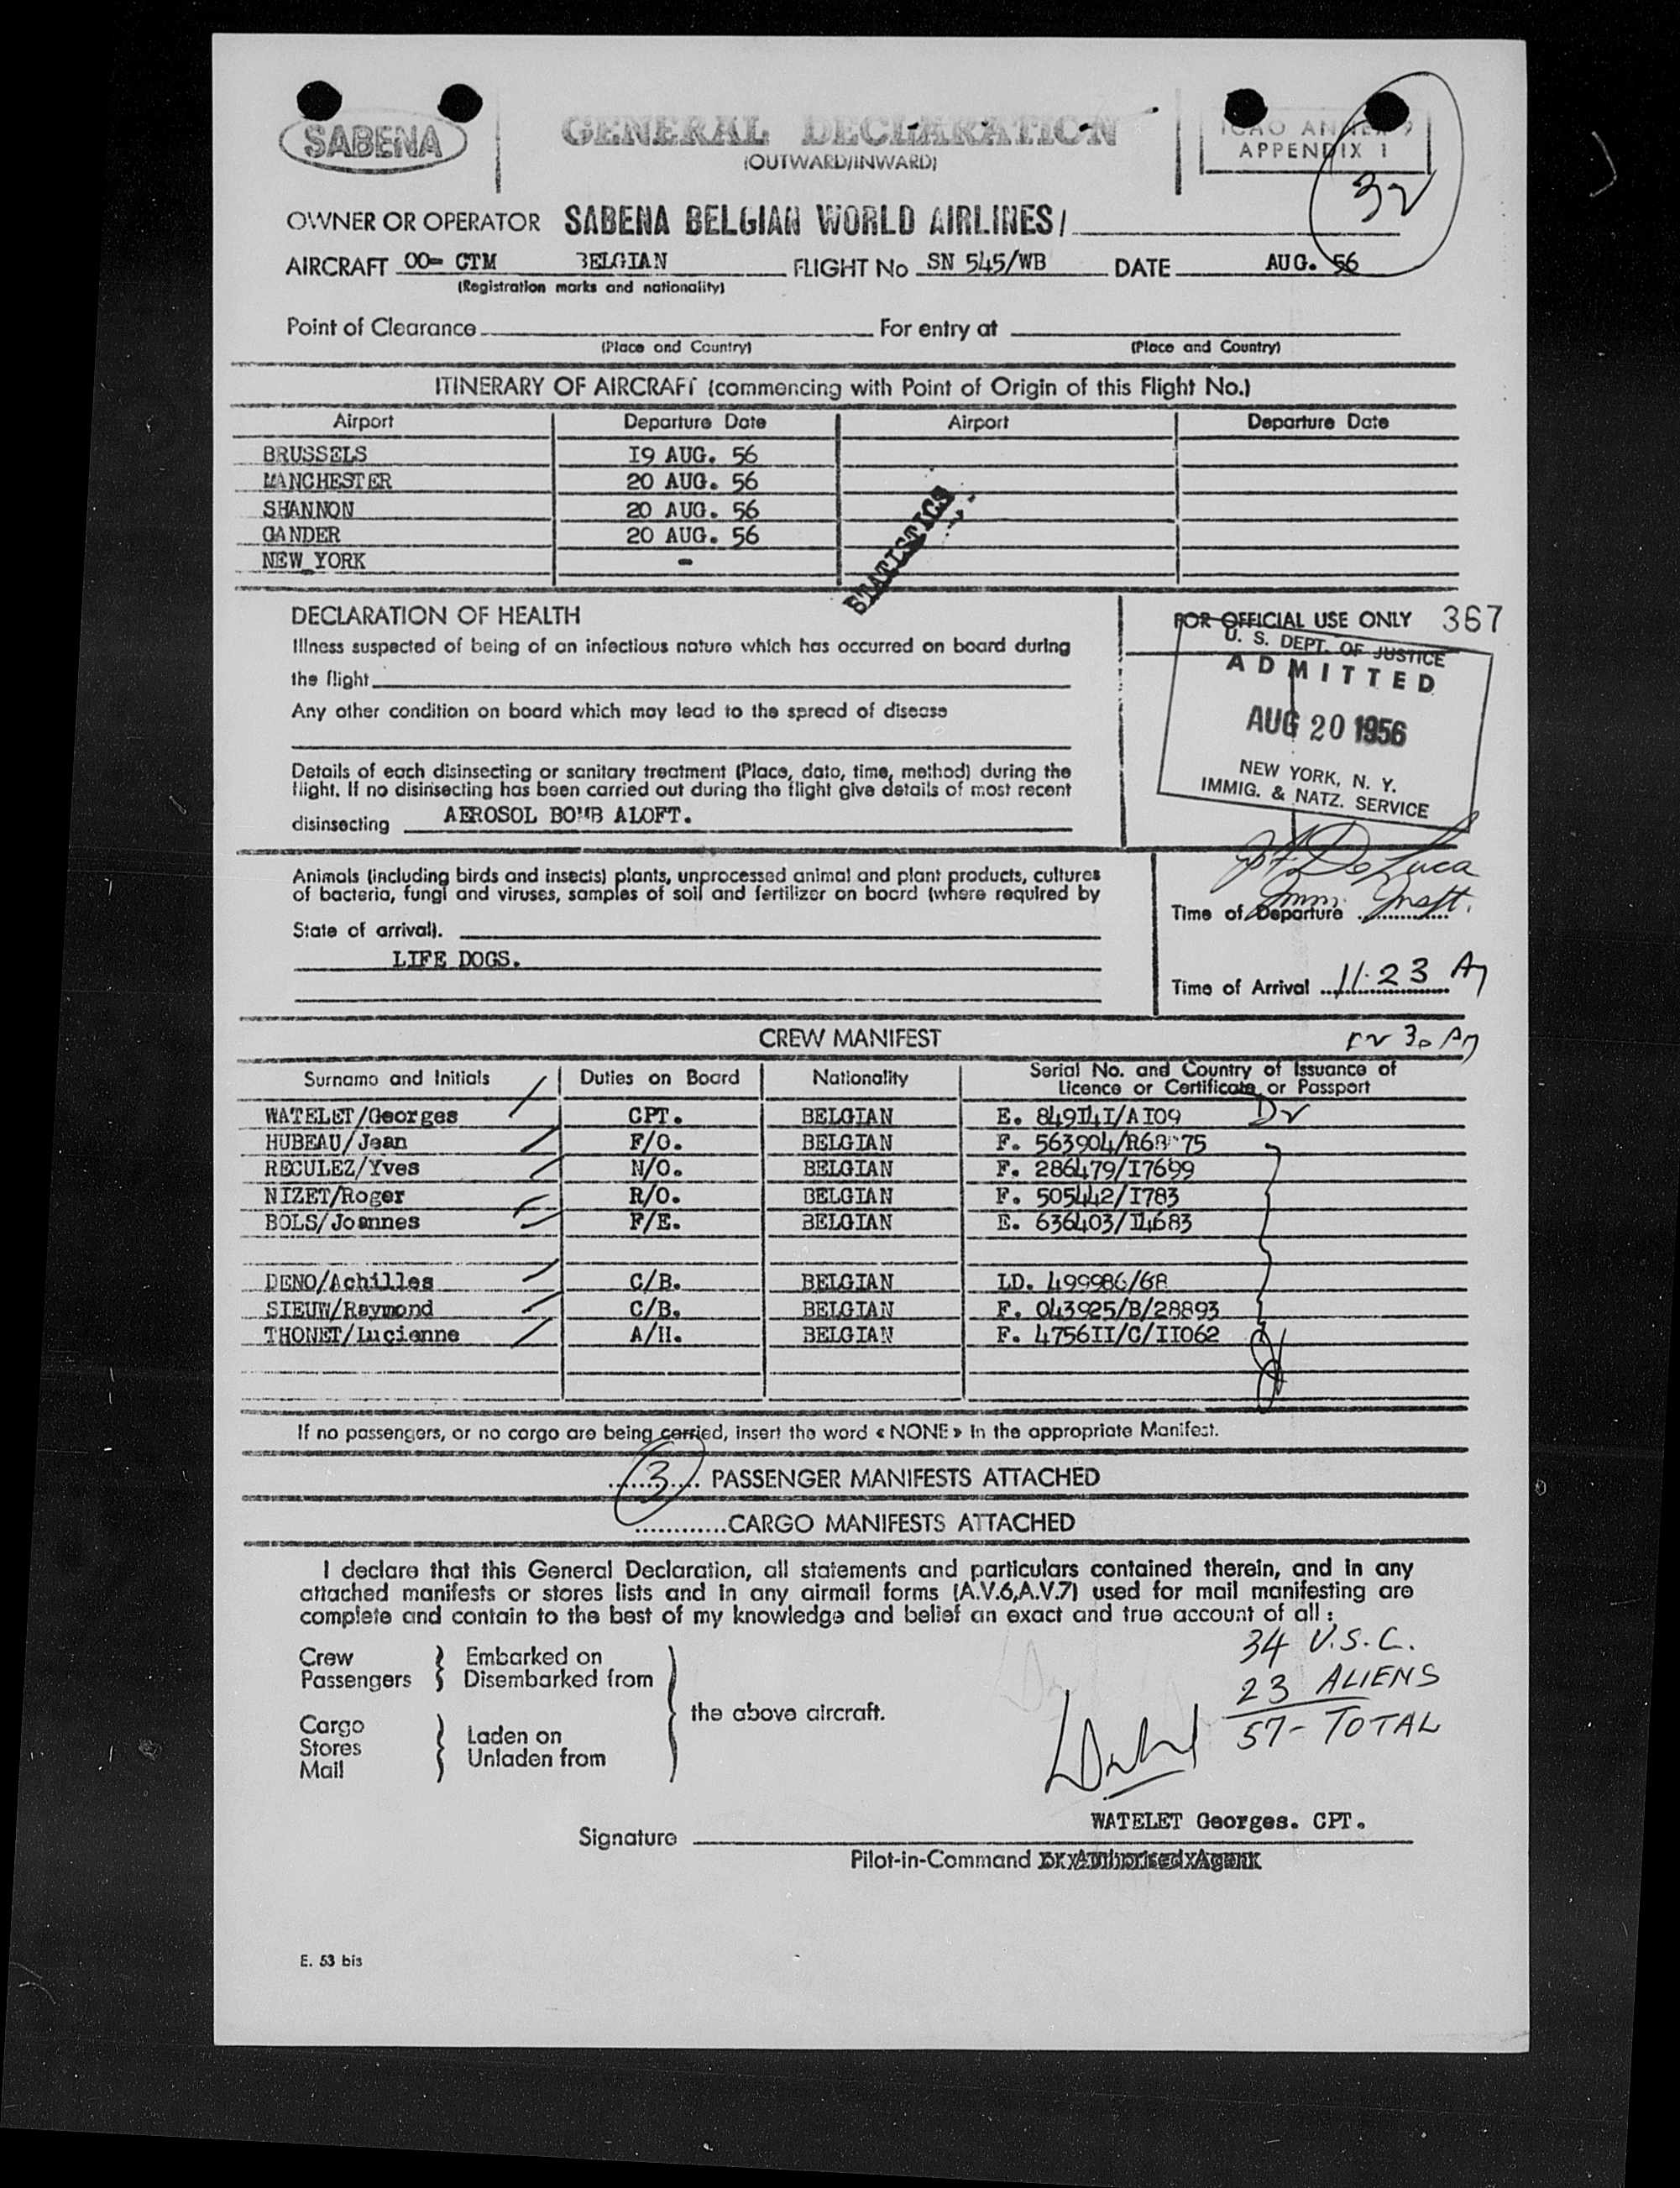 SABENA
GENERAL DECLARATION
(OUTWARD/INWARD)
ICAO ANNEX 9
APPENDIX 1
32
OWNER OR OPERATOR SABENA BELGIAN WORLD AIRLINES/
AIRCRAFT OO- CTM BELGIAN FLIGHT No SN 545/WB DATE AUG. 56
(Registration marks and nationality)
Point of Clearance For entry at
(Place and Country) (Place and Country)
ITINERARY OF AIRCRAFT (commencing with Point of Origin of this Flight No.)
Airport Departure Date Airport Departure Date
BRUSSELS I9 AUG. 56
MANCHESTER 20 AUG. 56
SHANNON 20 AUG. 56
GANDER 20 AUG. 56
NEW YORK -
STATISTICS
DECLARATION OF HEALTH
Illness suspected of being of an infectious nature which has occurred on board during
the flight
Any other condition on board which may lead to the spread of disease
Details of each disinsecting or sanitary treatment (Place, date, time, method) during the
flight. If no disinsecting has been carried out during the flight give details of most recent
disinsecting AEROSOL BOMB ALOFT.
FOR OFFICIAL USE ONLY 367
U. S. DEPT. OF JUSTICE
ADMITTED
AUG 20 1956
NEW YORK, N. Y.
IMMIG. & NATZ. SERVICE
De Luca
Imm. Inspt.
Animals (including birds and insects) plants, unprocessed animal and plant products, cultures
of bacteria, fungi and viruses, samples of soil and fertilizer on board (where required by
State of arrival).
LIFE DOGS.
Time of Departure
Time of Arrival 11:23 A
30 A
CREW MANIFEST
Surname and Initials Duties on Board Nationality Serial No. and Country of Issuance of
Licence or Certificate or Passport
WATELET/Georges CPT. BELGIAN E. 849I4I/AI09
HUBEAU/Jean F/O. BELGIAN
RECULEZ/Yves N/O. BELGIAN F. 286479/I7699
NIZET/Roger R/O. BELGIAN F. 505442/I783
BOLS/Joannes F/E. BELGIAN E. 636403/I4683
DENO/Achilles C/B. BELGIAN LD. 499986/6R
SIEUW/Raymond C/B. BELGIAN F. 043925/B/28893
THONET/Lucienne A/H. BELGIAN F. 4756II/C/II062
If no passengers, or no cargo are being carried, insert the word « NONE » in the appropriate Manifest.
3 PASSENGER MANIFESTS ATTACHED
............CARGO MANIFESTS ATTACHED
I declare that this General Declaration, all statements and particulars contained therein, and in any
attached manifests or stores lists and in any airmail forms (A.V.6,A.V.7) used for mail manifesting are
complete and contain to the best of my knowledge and belief an exact and true account of all :
Crew Embarked on
Passengers Disembarked from
the above aircraft.
Cargo Laden on
Stores Unladen from
Mail
34 U.S.C.
23 ALIENS
57- TOTAL
WATELET Georges. CPT.
Signature
Pilot-in-Command or Authorised Agent
E. 53 bis